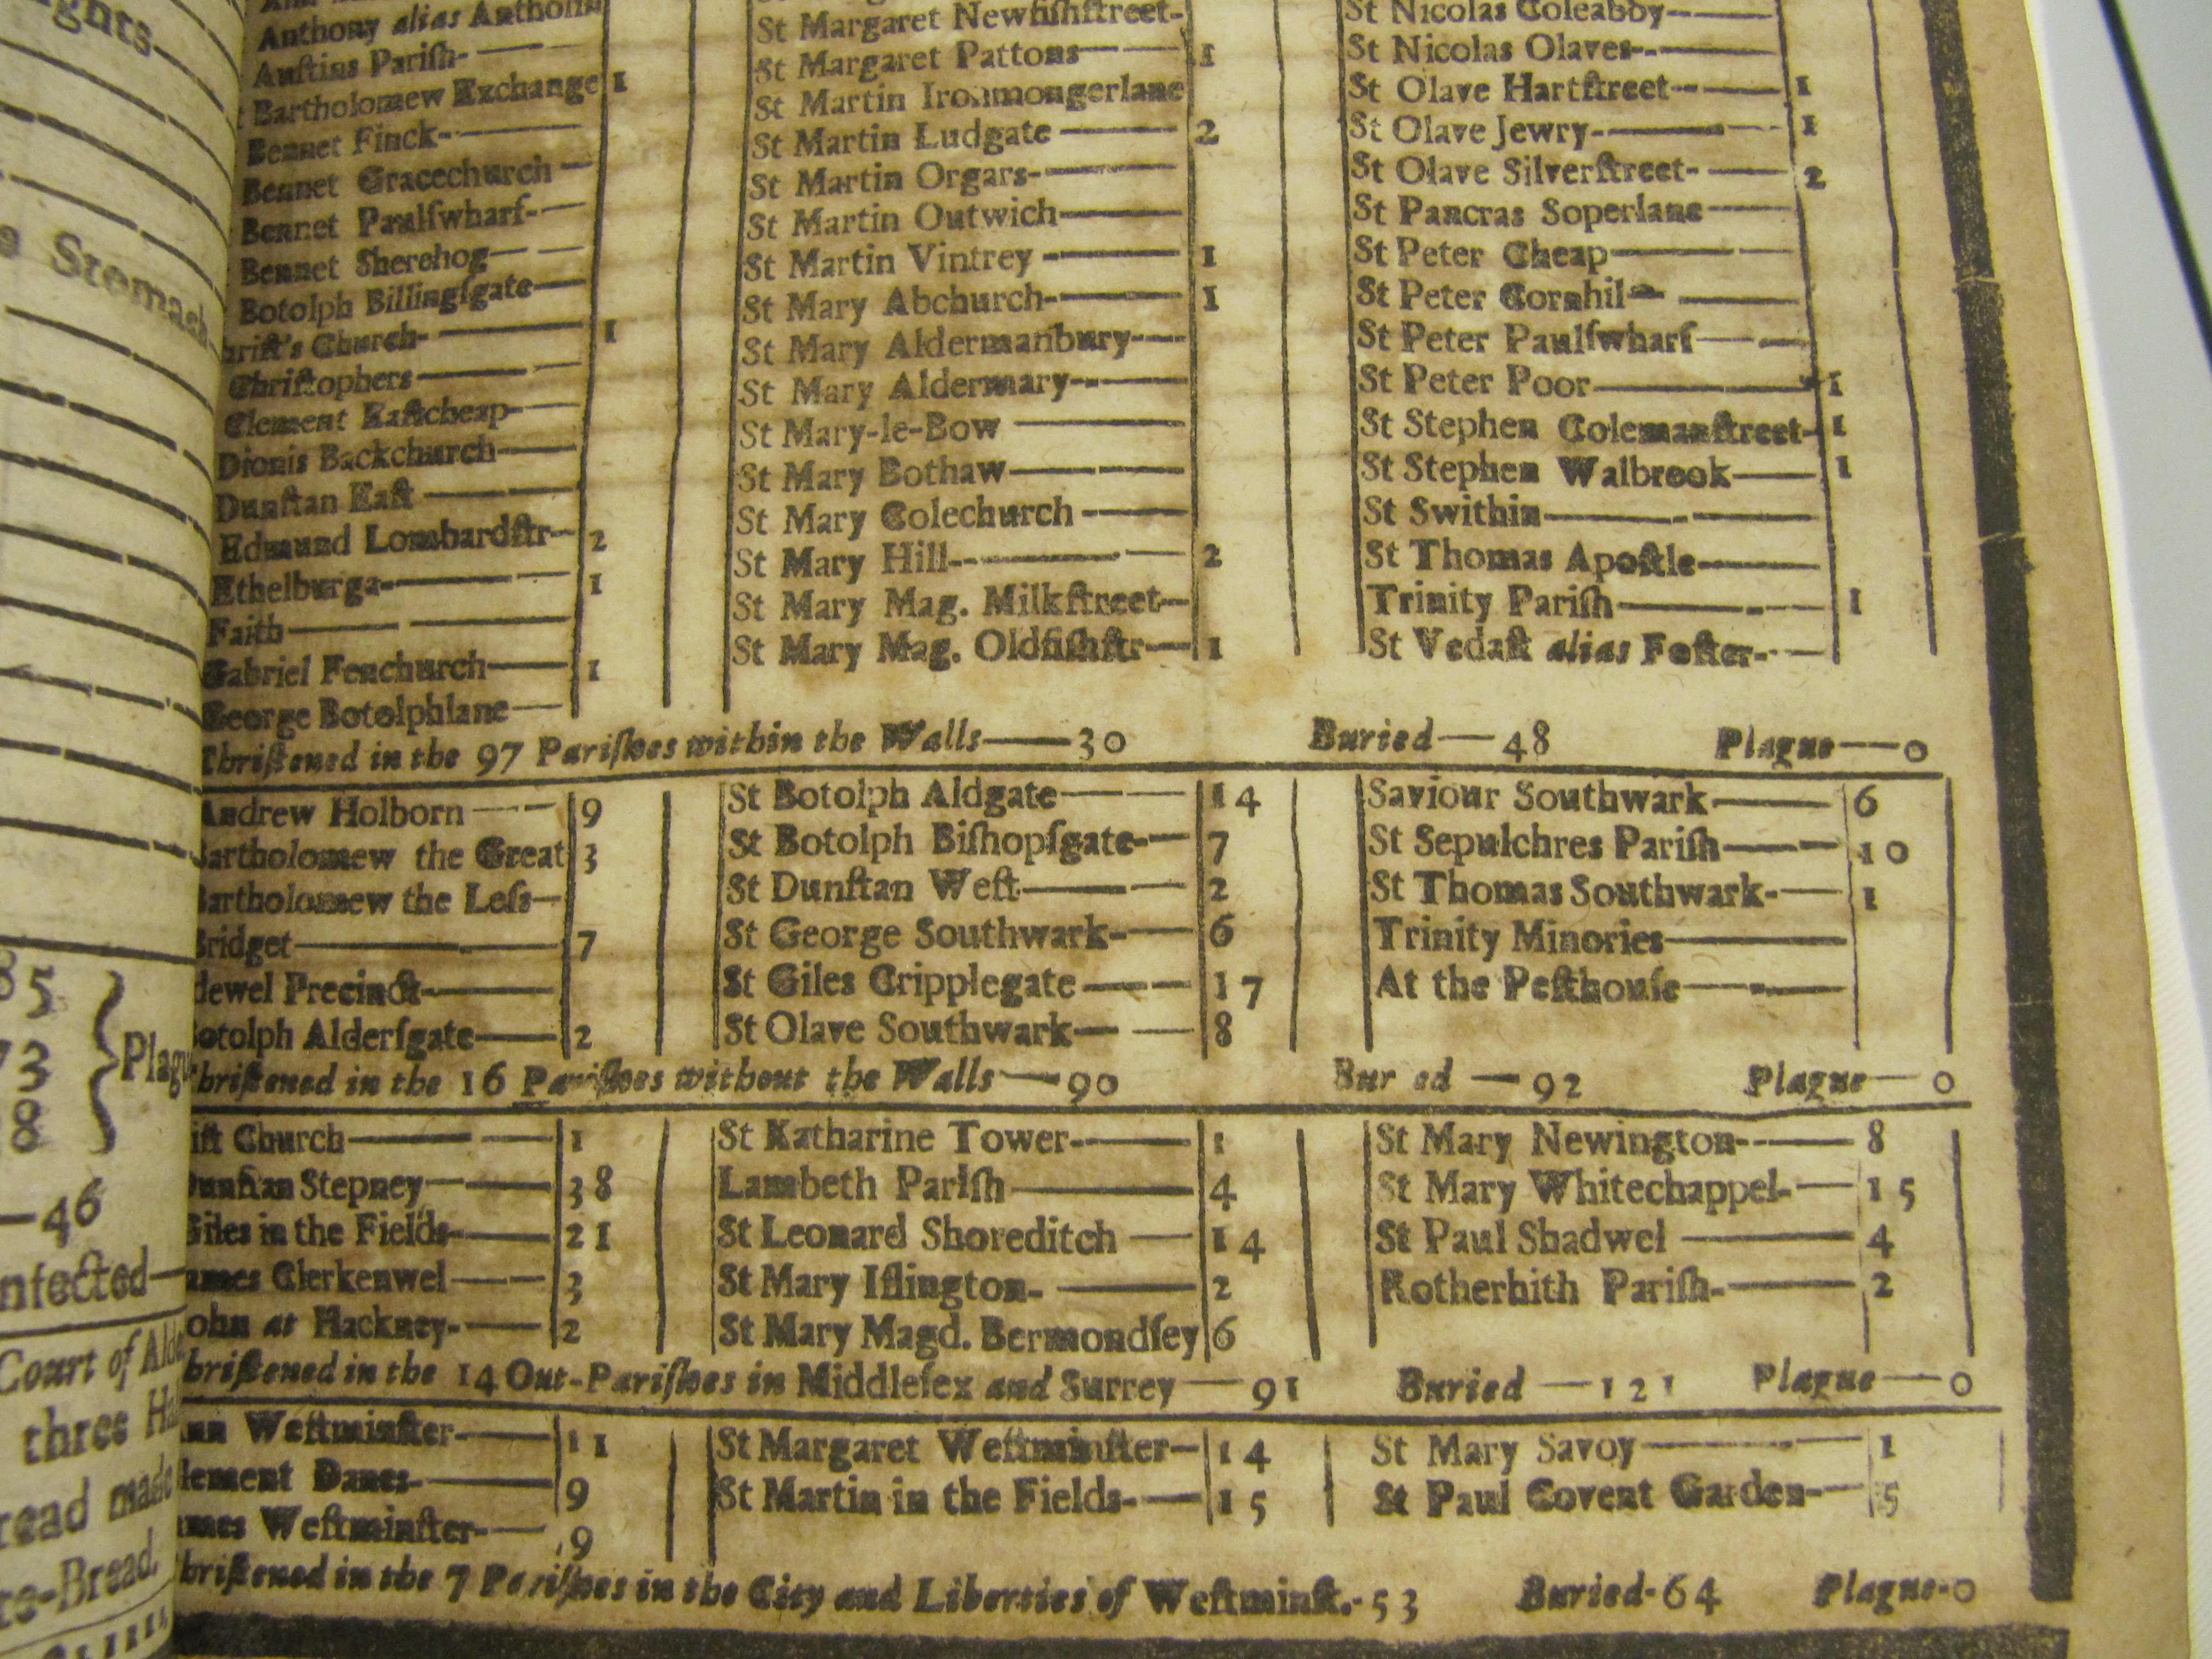 ghts
e Stomach
85
73
8
Plagu
46
nfected
Court of Alde
three Ha
read made
te-Bread.
Anthony alias Antholin
Auſtins Pariſh
t Bartholomew Exchange 1
Bennet Finck
Bennet Gracechurch
Bennet Paulſwharf
Bennet Sherehog
Botolph Billingſgate
hriſt's Church 1
Chriſtophers
Clement Eaſtcheap
Dionis Backchurch
Dunſtan Eaſt
Edmund Lombardſtr 2
Ethelburga 1
Faith
Gabriel Fenchurch 1
George Botolphlane
St Margaret Newfiſhſtreet
St Margaret Pattons 1
St Martin Ironmongerlane
St Martin Ludgate 2
St Martin Orgars
St Martin Outwich
St Martin Vintrey 1
St Mary Abchurch 1
St Mary Aldermanbury
St Mary Aldermary
St Mary-le-Bow
St Mary Bothaw
St Mary Colechurch
St Mary Hill 2
St Mary Mag. Milkſtreet
St Mary Mag. Oldfiſhſtr 1
St Nicolas Coleabby
St Nicolas Olaves
St Olave Hartſtreet 1
St Olave Jewry 1
St Olave Silverſtreet 2
St Pancras Soperlane
St Peter Cheap
St Peter Cornhil
St Peter Paulſwharf
St Peter Poor 1
St Stephen Colemanſtreet 1
St Stephen Walbrook 1
St Swithin
St Thomas Apoſtle
Trinity Pariſh 1
St Vedaſt alias Foſter
Chriſtened in the 97 Pariſhes within the Walls — 30 Buried — 48 Plague — 0
Andrew Holborn 9
Bartholomew the Great 3
Bartholomew the Leſs
Bridget 7
dewel Precinct
Botolph Alderſgate 2
St Botolph Aldgate 14
St Botolph Biſhopſgate 7
St Dunſtan Weſt 2
St George Southwark 6
St Giles Cripplegate 17
St Olave Southwark 8
Saviour Southwark 6
St Sepulchres Pariſh 10
St Thomas Southwark 1
Trinity Minories
At the Peſthouſe
hriſtened in the 16 Pariſhes without the Walls — 90 Bur ed — 92 Plague — 0
iſt Church 1
Dunſtan Stepney 38
Giles in the Fields 21
ames Clerkenwel 3
ohn at Hackney 2
St Katharine Tower 1
Lambeth Pariſh 4
St Leonard Shoreditch 14
St Mary Iſlington 2
St Mary Magd. Bermondſey 6
St Mary Newington 8
St Mary Whitechappel 15
St Paul Shadwel 4
Rotherhith Pariſh 2
hriſtened in the 14 Out-Pariſhes in Middleſex and Surrey — 91 Buried — 121 Plague — 0
nn Weſtminſter 11
lement Danes 9
ames Weſtminſter 9
St Margaret Weſtminſter 14
St Martin in the Fields 15
St Mary Savoy 1
St Paul Covent Garden 5
hriſtened in the 7 Pariſhes in the City and Liberties of Weſtminſt. 53 Buried 64 Plague 0